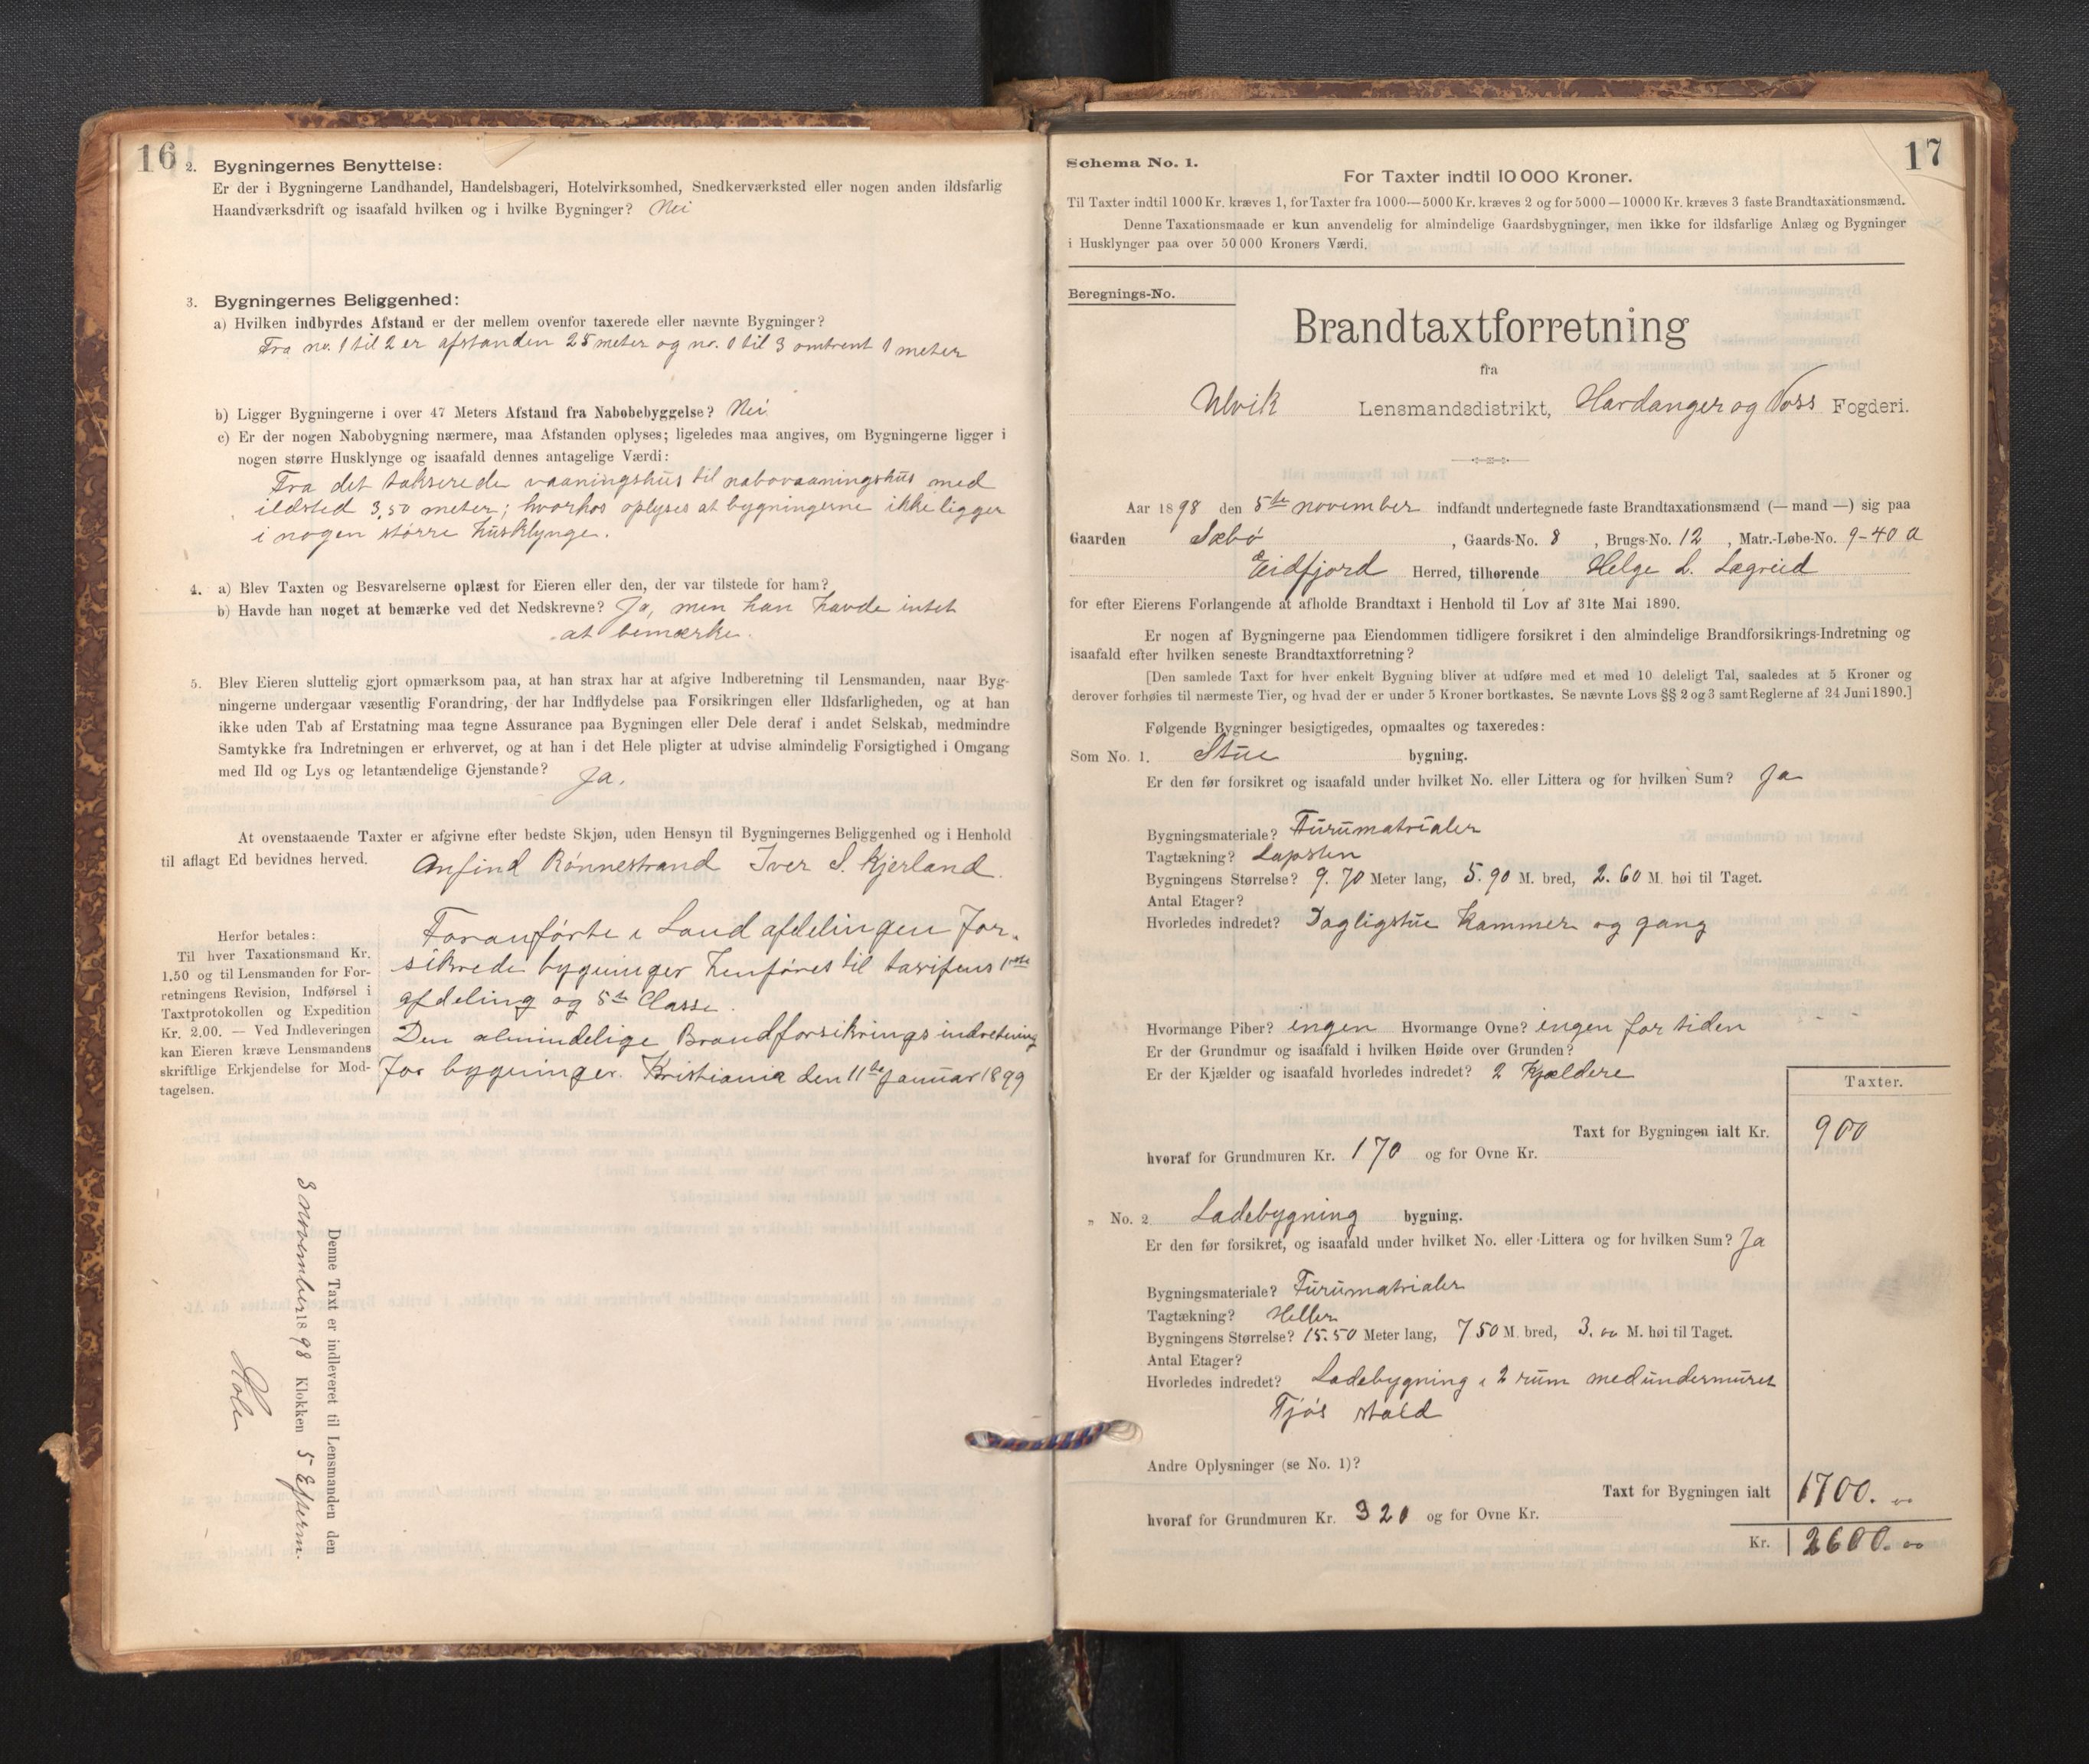 16
2. Bygningernes Benyttelse:
Er der i Bygningerne Landhandel, Handelsbageri, Hotelvirksomhed, Snedkerværksted eller nogen anden ildsfarlig
Haandværksdrift og isaafald hvilken og i hvilke Bygninger? Nei
3. Bygningernes Beliggenhed:
a) Hvilken indbyrdes Afstand er der mellem ovenfor taxerede eller nævnte Bygninger?
Fra no. 1 til 2 er afstanden 25 meter og no. 1 til 3 omtrent 1 meter
b) Ligger Bygningerne i over 47 Meters Afstand fra Nabobebyggelse? Nei
c) Er der nogen Nabobygning nærmere, maa Afstanden oplyses; ligeledes maa angives, om Bygningerne ligger i
nogen større Husklynge og isaafald dennes antagelige Værdi:
Fra det takserede vaaningshus til nabovaaningshus med
ildsted 3,50 meter; hvorhos oplyses at bygningerne ikke ligger
i nogen større husklynge.
4. a) Blev Taxten og Besvarelserne oplæst for Eieren eller den, der var tilstede for ham?
b) Havde han noget at bemærke ved det Nedskrevne? Ja, men han havde intet
at bemærke.
5. Blev Eieren sluttelig gjort opmærksom paa, at han strax har at afgive Indberetning til Lensmanden, naar Byg-
ningerne undergaar væsentlig Forandring, der har Indflydelse paa Forsikringen eller Ildsfarligheden, og at han
ikke uden Tab af Erstatning maa tegne Assurance paa Bygningen eller Dele deraf i andet Selskab, medmindre
Samtykke fra Indretningen er erhvervet, og at han i det Hele pligter at udvise almindelig Forsigtighed i Omgang
med Ild og Lys og letantændelige Gjenstande? Ja.
At ovenstaaende Taxter er afgivne efter bedste Skjøn, uden Hensyn til Bygningernes Beliggenhed og i Henhold
til aflagt Ed bevidnes herved.
Anfind Rønnestrand Iver S. Kjerland.
Herfor betales:
Til hver Taxationsmand Kr.
1.50 og til Lensmanden for For-
retningens Revision, Indførsel i
Taxtprotokollen og Expedition
Kr. 2.00. — Ved Indleveringen
kan Eieren kræve Lensmandens
skriftlige Erkjendelse for Mod-
tagelsen.
Foranførte i Land afdelingen for-
sikrede bygninger henføres til tarifens 1ste
afdeling og 5te Classe.
Den almindelige Brandforsikrings indretning
for bygninger. Kristiania den 11te Januar 1899
Denne Taxt er indleveret til Lensmanden den
8 november 1898 Klokken 5 Efterm.
17
Schema No. 1.
For Taxter indtil 10 000 Kroner.
Til Taxter indtil 1000 Kr. kræves 1, for Taxter fra 1000—5000 Kr. kræves 2 og for 5000—10000 Kr. kræves 3 faste Brandtaxationsmænd.
Denne Taxationsmaade er kun anvendelig for almindelige Gaardsbygninger, men ikke for ildsfarlige Anlæg og Bygninger
i Husklynger paa over 50 000 Kroners Værdi.
Beregnings-No.
Brandtaxtforretning
fra
Ulvik Lensmandsdistrikt, Hardanger og Voss Fogderi.
Aar 1898 den 5te november indfandt undertegnede faste Brandtaxationsmænd (— mand —) sig paa
Gaarden Sæbø, Gaards-No. 8, Brugs-No. 12, Matr.-Løbe-No. 9-40 a
Eidfjord Herred, tilhørende Helge L. Lægreid
for efter Eierens Forlangende at afholde Brandtaxt i Henhold til Lov af 31te Mai 1890.
Er nogen af Bygningerne paa Eiendommen tidligere forsikret i den almindelige Brandforsikrings-Indretning og
isaafald efter hvilken seneste Brandtaxtforretning?
[Den samlede Taxt for hver enkelt Bygning bliver at udføre med et med 10 deleligt Tal, saaledes at 5 Kroner og
derover forhøies til nærmeste Tier, og hvad der er under 5 Kroner bortkastes. Se nævnte Lovs §§ 2 og 3 samt Reglerne af 24 Juni 1890.]
Følgende Bygninger besigtigedes, opmaaltes og taxeredes:
Som No. 1. Stue bygning.
Er den før forsikret og isaafald under hvilket No. eller Littera og for hvilken Sum? Ja
Bygningsmateriale? Furumatrialer
Tagtækning? Lapsten
Bygningens Størrelse? 9.70 Meter lang, 5.90 M. bred, 2.60 M. høi til Taget.
Antal Etager?
Hvorledes indredet? Dagligstue kammer og gang
Hvormange Piber? ingen Hvormange Ovne? ingen for tiden
Er der Grundmur og isaafald i hvilken Høide over Grunden?
Er der Kjælder og isaafald hvorledes indredet? 2 Kjældere
Taxter.
Taxt for Bygningen ialt Kr. 900
hvoraf for Grundmuren Kr. 170 og for Ovne Kr.
„ No. 2 Ladebygning bygning.
Er den før forsikret, og isaafald under hvilket No. eller Littera og for hvilken Sum? Ja
Bygningsmateriale? Furumatrialer
Tagtækning? Heller
Bygningens Størrelse? 15.50 Meter lang, 7 50 M. bred, 3.00 M. høi til Taget.
Antal Etager?
Hvorledes indredet? Ladebygning i 2 rum med undermuret
Fjøs stald
Andre Oplysninger (se No. 1)?
Taxt for Bygningen ialt 1700.00
hvoraf for Grundmuren Kr. 320 og for Ovne Kr.
Kr. 2600.00